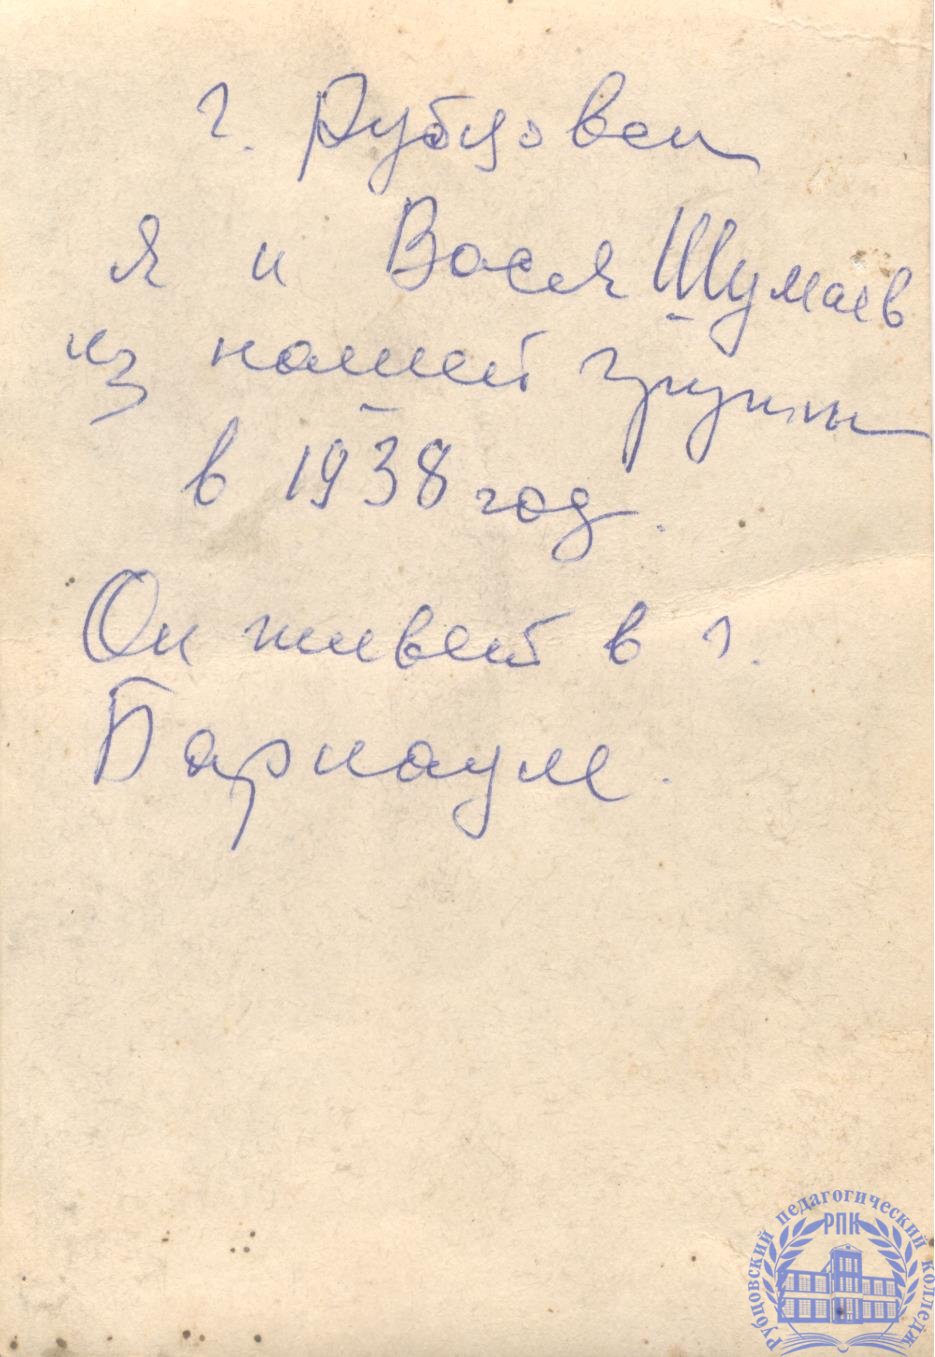 г. Рубцовск
Я и Вася Шумаев
из нашей группы
в 1938 год.
Он живет в г.
Барнауле.
Рубцовский педагогический колледж
РПК